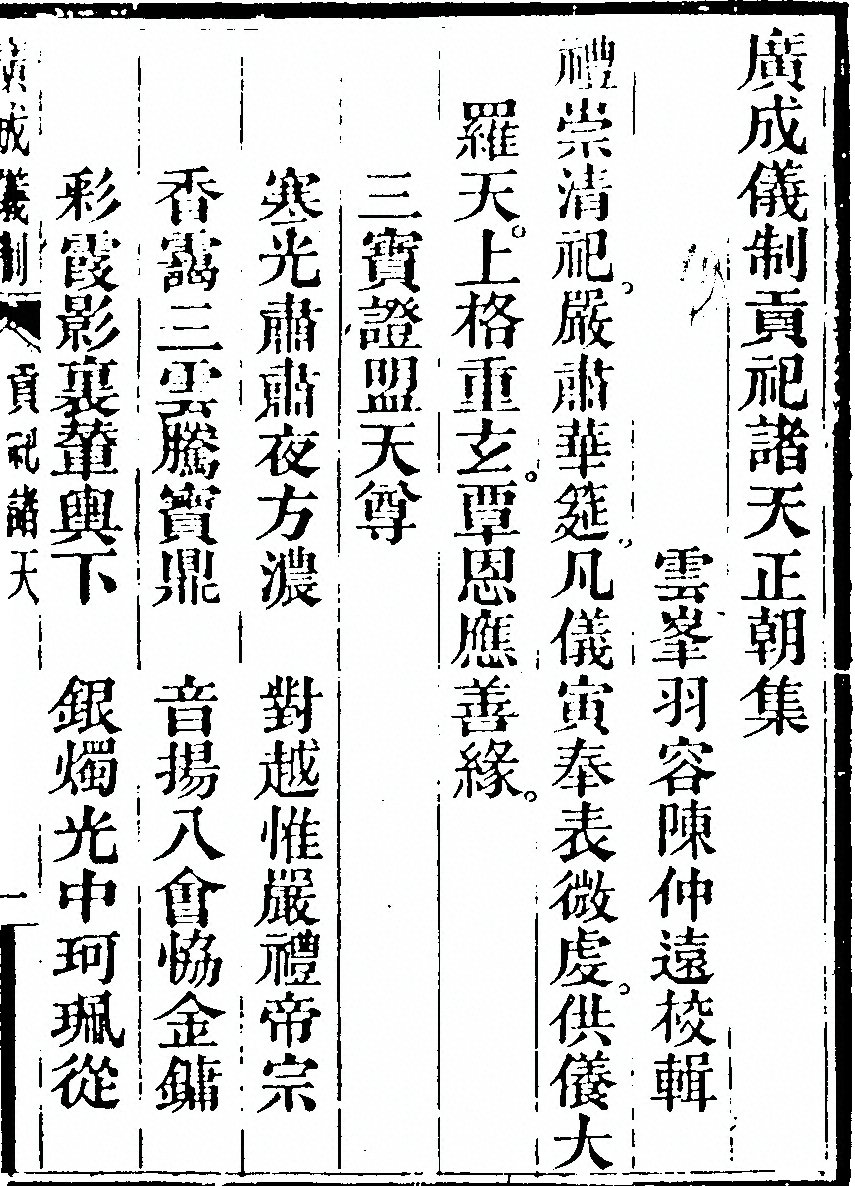 廣成儀制貢祀諸天正朝集
雲峯羽容陳仲遠校輯
禮崇清祀。嚴肅華筵。凡儀寅奉表微虔。供儀大
羅天。上格重玄。覃恩應善緣。
三寶證盟天尊
寒光肅肅夜方濃 對越惟嚴禮帝宗
香靄三雲騰寶鼎 音揚八會恊金鏞
彩霞影裏輦輿下 銀燭光中珂珮從
廣成儀制 貢祀諸天 一